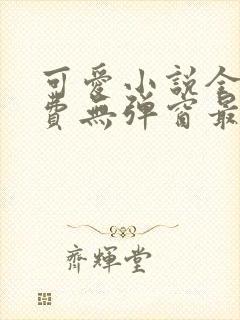 可愛小說全
費無彈窗最
齊輝堂